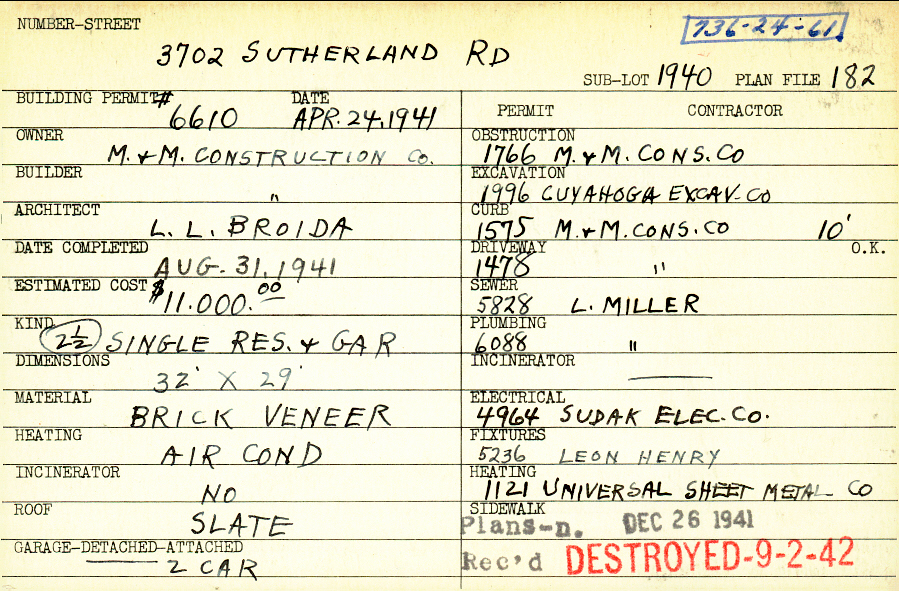 NUMBER-STREET
736-24-61
3702 SUTHERLAND RD
SUB-LOT 1940 PLAN FILE 182
BUILDING PERMIT# DATE
6610 APR. 24, 1941
OWNER
M. & M. CONSTRUCTION CO.
BUILDER
"
ARCHITECT
L. L. BROIDA
DATE COMPLETED
AUG. 31, 1941
ESTIMATED COST
$11.000.00
KIND
2½ SINGLE RES. & GAR
DIMENSIONS
32' X 29'
MATERIAL
BRICK VENEER
HEATING
AIR COND
INCINERATOR
NO
ROOF
SLATE
GARAGE-DETACHED-ATTACHED
2 CAR
PERMIT CONTRACTOR
OBSTRUCTION
1766 M. & M. CONS. CO
EXCAVATION
1996 CUYAHOGA EXCAV. CO
CURB
1575 M. & M. CONS. CO 10'
DRIVEWAY O.K.
1478 "
SEWER
5828 L. MILLER
PLUMBING
6088 "
INCINERATOR
ELECTRICAL
4964 SUDAK ELEC. CO.
FIXTURES
5236 LEON HENRY
HEATING
1121 UNIVERSAL SHEET METAL CO
SIDEWALK
Plans-n. DEC 26 1941
Rec'd DESTROYED-9-2-42